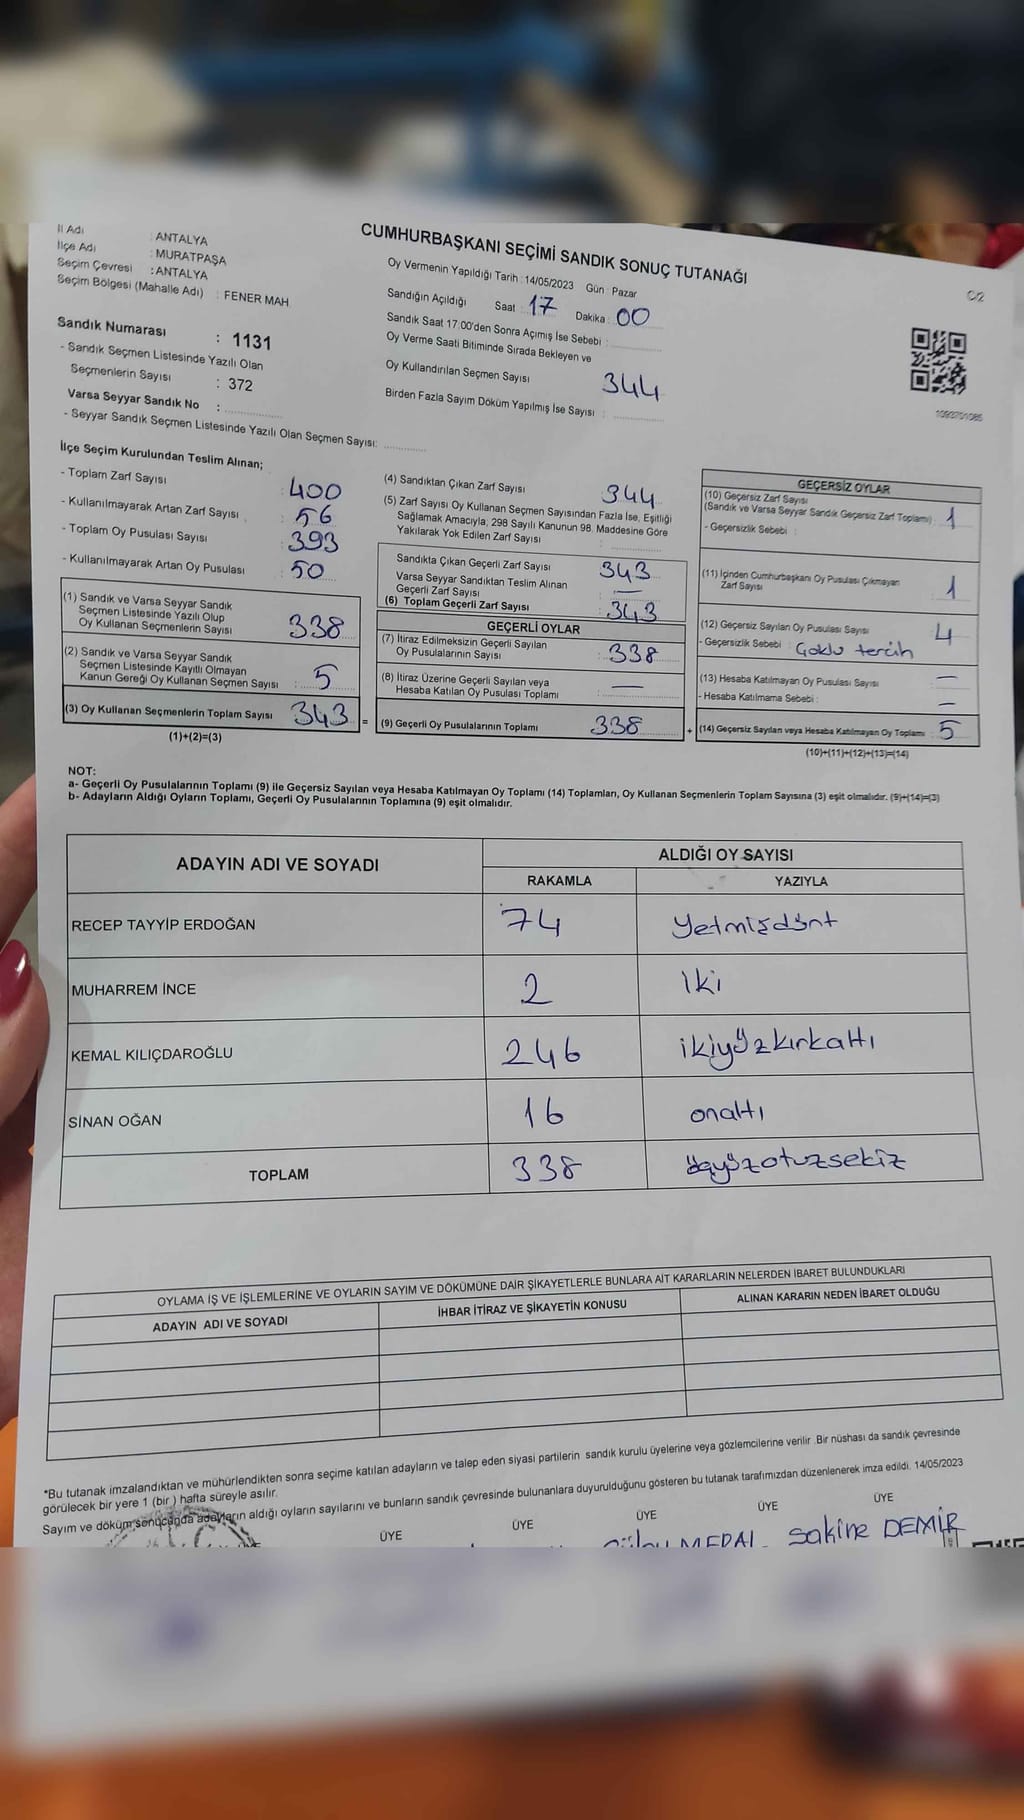 CUMHURBAŞKANI SEÇİMİ SANDIK SONUÇ TUTANAĞI
İl Adı : ANTALYA
İlçe Adı : MURATPAŞA
Seçim Çevresi : ANTALYA
Seçim Bölgesi (Mahalle Adı) : FENER MAH.
Sandık Numarası : 1131
- Sandık Seçmen Listesinde Yazılı Olan
Seçmenlerin Sayısı : 372
Varsa Seyyar Sandık No :
- Seyyar Sandık Seçmen Listesinde Yazılı Olan Seçmen Sayısı:
Oy Vermenin Yapıldığı Tarih : 14/05/2023 Gün : Pazar
Sandığın Açıldığı Saat : 17 Dakika : 00
Sandık Saat 17:00'den Sonra Açımış İse Sebebi :
Oy Verme Saati Bitiminde Sırada Bekleyen ve
Oy Kullandırılan Seçmen Sayısı 344
Birden Fazla Sayım Döküm Yapılmış İse Sayısı :
C/2
1093701085
İlçe Seçim Kurulundan Teslim Alınan;
- Toplam Zarf Sayısı : 400
- Kullanılmayarak Artan Zarf Sayısı : 56
- Toplam Oy Pusulası Sayısı : 393
- Kullanılmayarak Artan Oy Pusulası : 50
(1) Sandık ve Varsa Seyyar Sandık
Seçmen Listesinde Yazılı Olup
Oy Kullanan Seçmenlerin Sayısı 338
(2) Sandık ve Varsa Seyyar Sandık
Seçmen Listesinde Kayıtlı Olmayan
Kanun Gereği Oy Kullanan Seçmen Sayısı : 5
(3) Oy Kullanan Seçmenlerin Toplam Sayısı 343 =
(1)+(2)=(3)
(4) Sandıktan Çıkan Zarf Sayısı 344
(5) Zarf Sayısı Oy Kullanan Seçmen Sayısından Fazla İse, Eşitliği
Sağlamak Amacıyla, 298 Sayılı Kanunun 98. Maddesine Göre
Yakılarak Yok Edilen Zarf Sayısı :
Sandıkta Çıkan Geçerli Zarf Sayısı 343
Varsa Seyyar Sandıktan Teslim Alınan
Geçerli Zarf Sayısı : —
(6) Toplam Geçerli Zarf Sayısı : 343
GEÇERLİ OYLAR
(7) İtiraz Edilmeksizin Geçerli Sayılan
Oy Pusulalarının Sayısı : 338
(8) İtiraz Üzerine Geçerli Sayılan veya
Hesaba Katılan Oy Pusulası Toplamı : —
(9) Geçerli Oy Pusulalarının Toplamı 338 +
GEÇERSİZ OYLAR
(10) Geçersiz Zarf Sayısı
(Sandık ve Varsa Seyyar Sandık Geçersiz Zarf Toplamı) : 1
- Geçersizlik Sebebi :
(11) İçinden Cumhurbaşkanı Oy Pusulası Çıkmayan
Zarf Sayısı 1
(12) Geçersiz Sayılan Oy Pusulası Sayısı 4
- Geçersizlik Sebebi : Çoklu tercih
(13) Hesaba Katılmayan Oy Pusulası Sayısı —
- Hesaba Katılmama Sebebi : —
(14) Geçersiz Sayılan veya Hesaba Katılmayan Oy Toplamı 5
(10)+(11)+(12)+(13)=(14)
NOT:
a- Geçerli Oy Pusulalarının Toplamı (9) ile Geçersiz Sayılan veya Hesaba Katılmayan Oy Toplamı (14) Toplamları, Oy Kullanan Seçmenlerin Toplam Sayısına (3) eşit olmalıdır. (9)+(14)=(3)
b- Adayların Aldığı Oyların Toplamı, Geçerli Oy Pusulalarının Toplamına (9) eşit olmalıdır.
ADAYIN ADI VE SOYADI ALDIĞI OY SAYISI
RAKAMLA YAZIYLA
RECEP TAYYİP ERDOĞAN 74 Yetmişdört
MUHARREM İNCE 2 İki
KEMAL KILIÇDAROĞLU 246 ikiyüzkırkaltı
SİNAN OĞAN 16 onaltı
TOPLAM 338 üçyüzotuzsekiz
OYLAMA İŞ VE İŞLEMLERİNE VE OYLARIN SAYIM VE DÖKÜMÜNE DAİR ŞİKAYETLERLE BUNLARA AİT KARARLARIN NELERDEN İBARET BULUNDUKLARI
ADAYIN ADI VE SOYADI İHBAR İTİRAZ VE ŞİKAYETİN KONUSU ALINAN KARARIN NEDEN İBARET OLDUĞU
*Bu tutanak imzalandıktan ve mühürlendikten sonra seçime katılan adayların ve talep eden siyasi partilerin sandık kurulu üyelerine veya gözlemcilerine verilir .Bir nüshası da sandık çevresinde
görülecek bir yere 1 (bir ) hafta süreyle asılır.
Sayım ve döküm sonucunda adayların aldığı oyların sayılarını ve bunların sandık çevresinde bulunanlara duyurulduğunu gösteren bu tutanak tarafımızdan düzenlenerek imza edildi. 14/05/2023
ÜYE ÜYE ÜYE ÜYE ÜYE
Sakine DEMİR